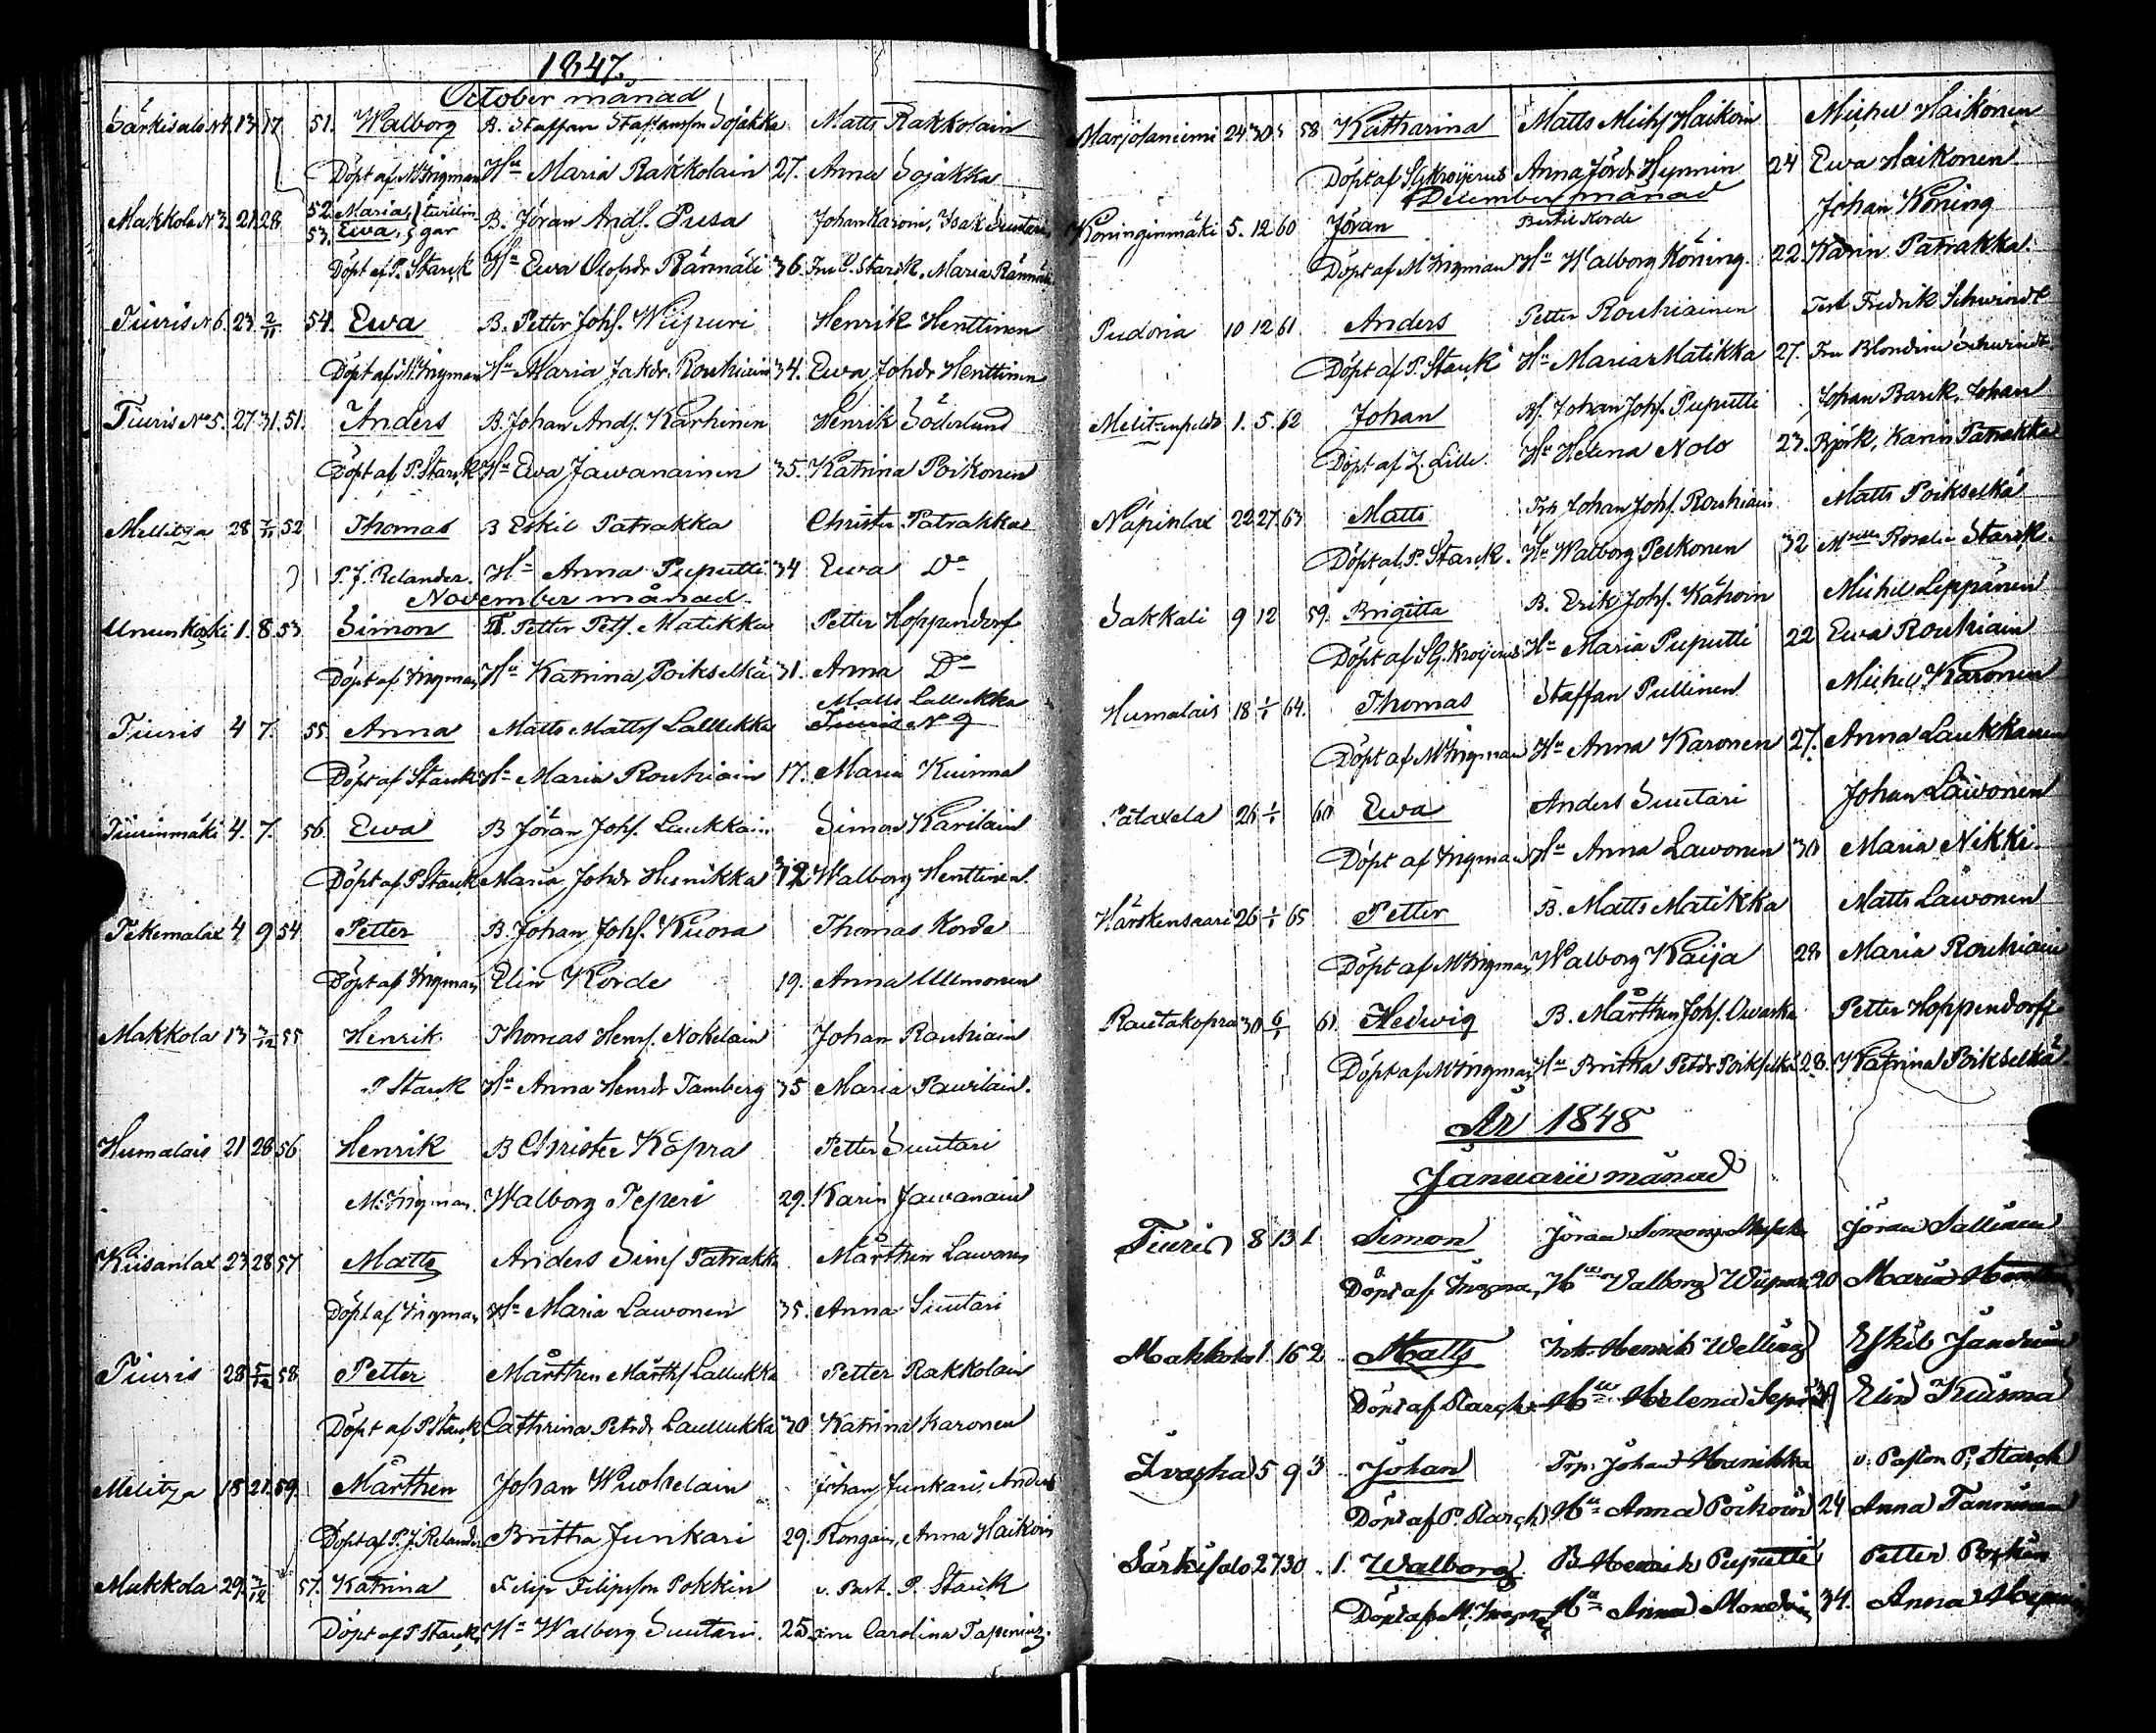 1847.
October månad
Särkisalo N4. 13. 17 51. Walborg B. Staffan Staffansson Sojakka Matts Rakkolain
Döpt af M Ingman Hu Maria Rakkolain 27. Anna Sojakka
Makkola N 3. 21. 28. 52. Maria, 53. Ewa, tvillingar B. Jöran Ands. Pusa Johan Karoin, Isak Suutari
Döpt af P. Starck Hu Ewa Olofsdr Rännäli 36. Fru C. Starck, Maria Rännäli
Tiuris N 6. 23. 2/11. 54. Ewa B. Petter Johs. Wiipuri Henrik Henttinen
Döpt af M Ingman Hu Maria Jakdr. Rouhiain 34. Ewa Johdr Henttinen
Tiuris No 5. 27. 31. 51. Anders B. Johan Ands. Karhinen Henrik Söderlund
Döpt af P. Starck Hu Ewa Jawanainen 35. Katrina Poikonen
Mellitza 28 7/11 52 Thomas B Eskil Patrakka Christer Patrakka
P. J. Relander. Hu Anna Puputti 34 Ewa Do
November månad.
Ununkoski 1. 8. 53 Simon B. Petter Pets. Matikka Petter Hoppendorf
Döpt af Ingman Hu Katrina Poikselkä 31. Anna Do
Tiuris 4 7. 55. Anna Matts Mattss Lallukka Matts Lallukka Tiuris N 9
Döpt af Starck Hu Maria Rouhiain 17. Maria Kuisma
Tiurinmäki 4. 7. 56. Ewa B Jöran Johs. Luukkain Simon Karilain
Döpt af P Starck Maria Johdr Hunikka 32 Walborg Henttinen.
Tekemalax 4 9 54 Petter B. Johan Johs. Kuora Thomas Korde
Döpt af Ingman Elin Korde 19. Anna Ullmonen
Makkola 13 3/12 55 Henrik Thomas Henrs. Nokelain Johan Rouhiain
P Starck Hu Anna Henrdr Tamberg 35 Maria Paurilain.
Humalais 21 28 56 Henrik B Christer Kopra Petter Suutari
M. Ingman. Walborg Teperi 29. Karin Jawanain
Kiisanlax 23 28 57 Matts Anders Sims Patrakka Mårthen Lawonen
Döpt af Ingman Hu Maria Lawonen 35. Anna Suutari
Tiuris 28 5/12 58 Petter Mårthen Mårths Lallukka Petter Rakkolain
Döpt af P Starck Cathrina Petrdr Laullukka 30 Katrina Karonen
Melitza 18 21. 59. Mårthen Johan Wuohelain Johan Junkari, Anders
Döpt af P. J. Relander Britha Junkari 29. Rongain, Anna Haikoin
Mukkola 29. 3/12 57. Katrina Filip Filipsson Pokkin v. Past. P. Starck
Döpt af P Starck Hu Walborg Suutari. 25. Fru Carolina Tapenius
Marjolaniemi 24 30 58 Katharina Matts Michs Haikoin Michel Haikonen
Döpt af SG Kroijerus Anna Jördr Hynnin 24 Ewa Haikonen
December månad
Köninginmäki 5. 12 60 Jöran Bertil Korde Johan Köning
Döpt af M Ingman Hu Walborg Köning. 22. Karin Patrakka.
Pudoria 10 12 61 Anders Petter Rouhiainen Fredrik Schwindt
Döpt af P. Starck Hu Maria Matikka 27. Fru Blondine Schwindt
Melitzenpelto 1. 5. 62 Johan Johan Johs. Puputti Johan Barck, Johan
Döpt af Z. Lille. Hu Helena Nolo 23. Björk, Karin Patrakka
Näpinlax 22 27. 63 Matts Johan Johs. Rouhiain Matts Poikselkä
Döpt af P. Starck. Hu Walborg Pelkonen 32 Mselle Rosalie Starck.
Sakkali 9 12 59. Brigitta B. Erik Johs. Kähoin Michel Leppänen
Döpt af SG. Kroijerus Hu Maria Puputti 22 Ewa Rouhiain
Humalais 18 1/1 64. Thomas Staffan Pullinen Michel Karonen
Döpt af M Ingman Hu Anna Karonen 27. Anna Laukkanen
Pataxela 26 1/1 60 Ewa Anders Suutari Johan Lawonen
Döpt af Ingman Hu Anna Lawonen 30 Maria Nikki.
Härskensaari 26 1/1 65 Petter B. Matts Matikka Matts Lawonen
Döpt af M Ingman Walborg Kaija 28 Maria Rouhiain
Rautakopra 30 6/1 61. Hedwig B. Mårthen Johs. Owaska Petter Hoppendorff
Döpt af M Ingman Hu Britha Petdr Poikselkä 28. Katrina Poikselkä.
År 1848
Januarii månad
Tiuris 8 13 1. Simon Jöran Simons Jöran Sallinen
Döpt af Ingman, Hu Walborg Wiipuri 20 Maria
Makkola 1. 16 2 Matts Henrik Welling Eskil
Döpt af Starck Hu Helena Elin Kuisma
Ivaska 5 9 3 Johan Trp. Johan Hunikka v. Pastor P. Starck
Döpt af P. Starck Hu Anna Poikoin 24 Anna
Särkisalo 27 30 1. Walborg B Henrik Puputti Petter
Döpt af M. Ingman Hu Anna 34. Anna